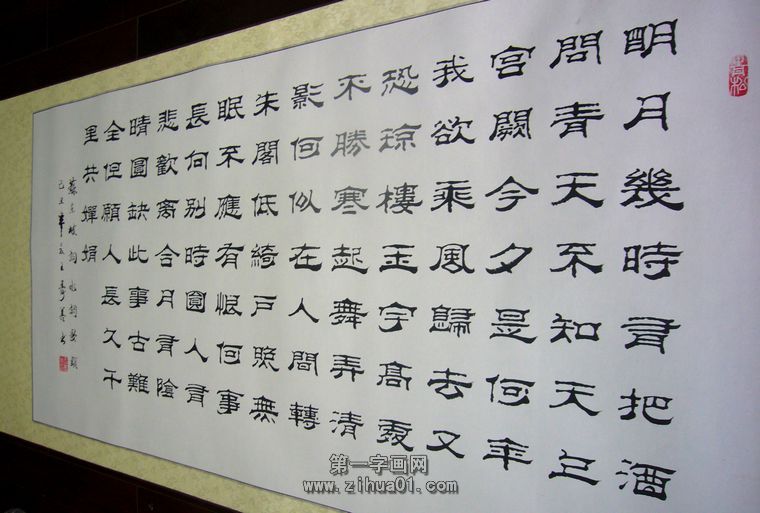 明月幾時有把酒
問青天不知天上
宮闕今夕是何年
我欲乘風歸去又
恐琼樓玉宇高處
不勝寒起舞弄清
影何似在人間轉
朱閣低綺戶照無
眠不應有恨何事
長向別時圓人有
悲歡離合月有陰
晴圓缺此事古難
全但願人長久千
里共嬋娟
蘇東坡詞水調歌頭
己丑年
第一字画网
www.zihua01.com